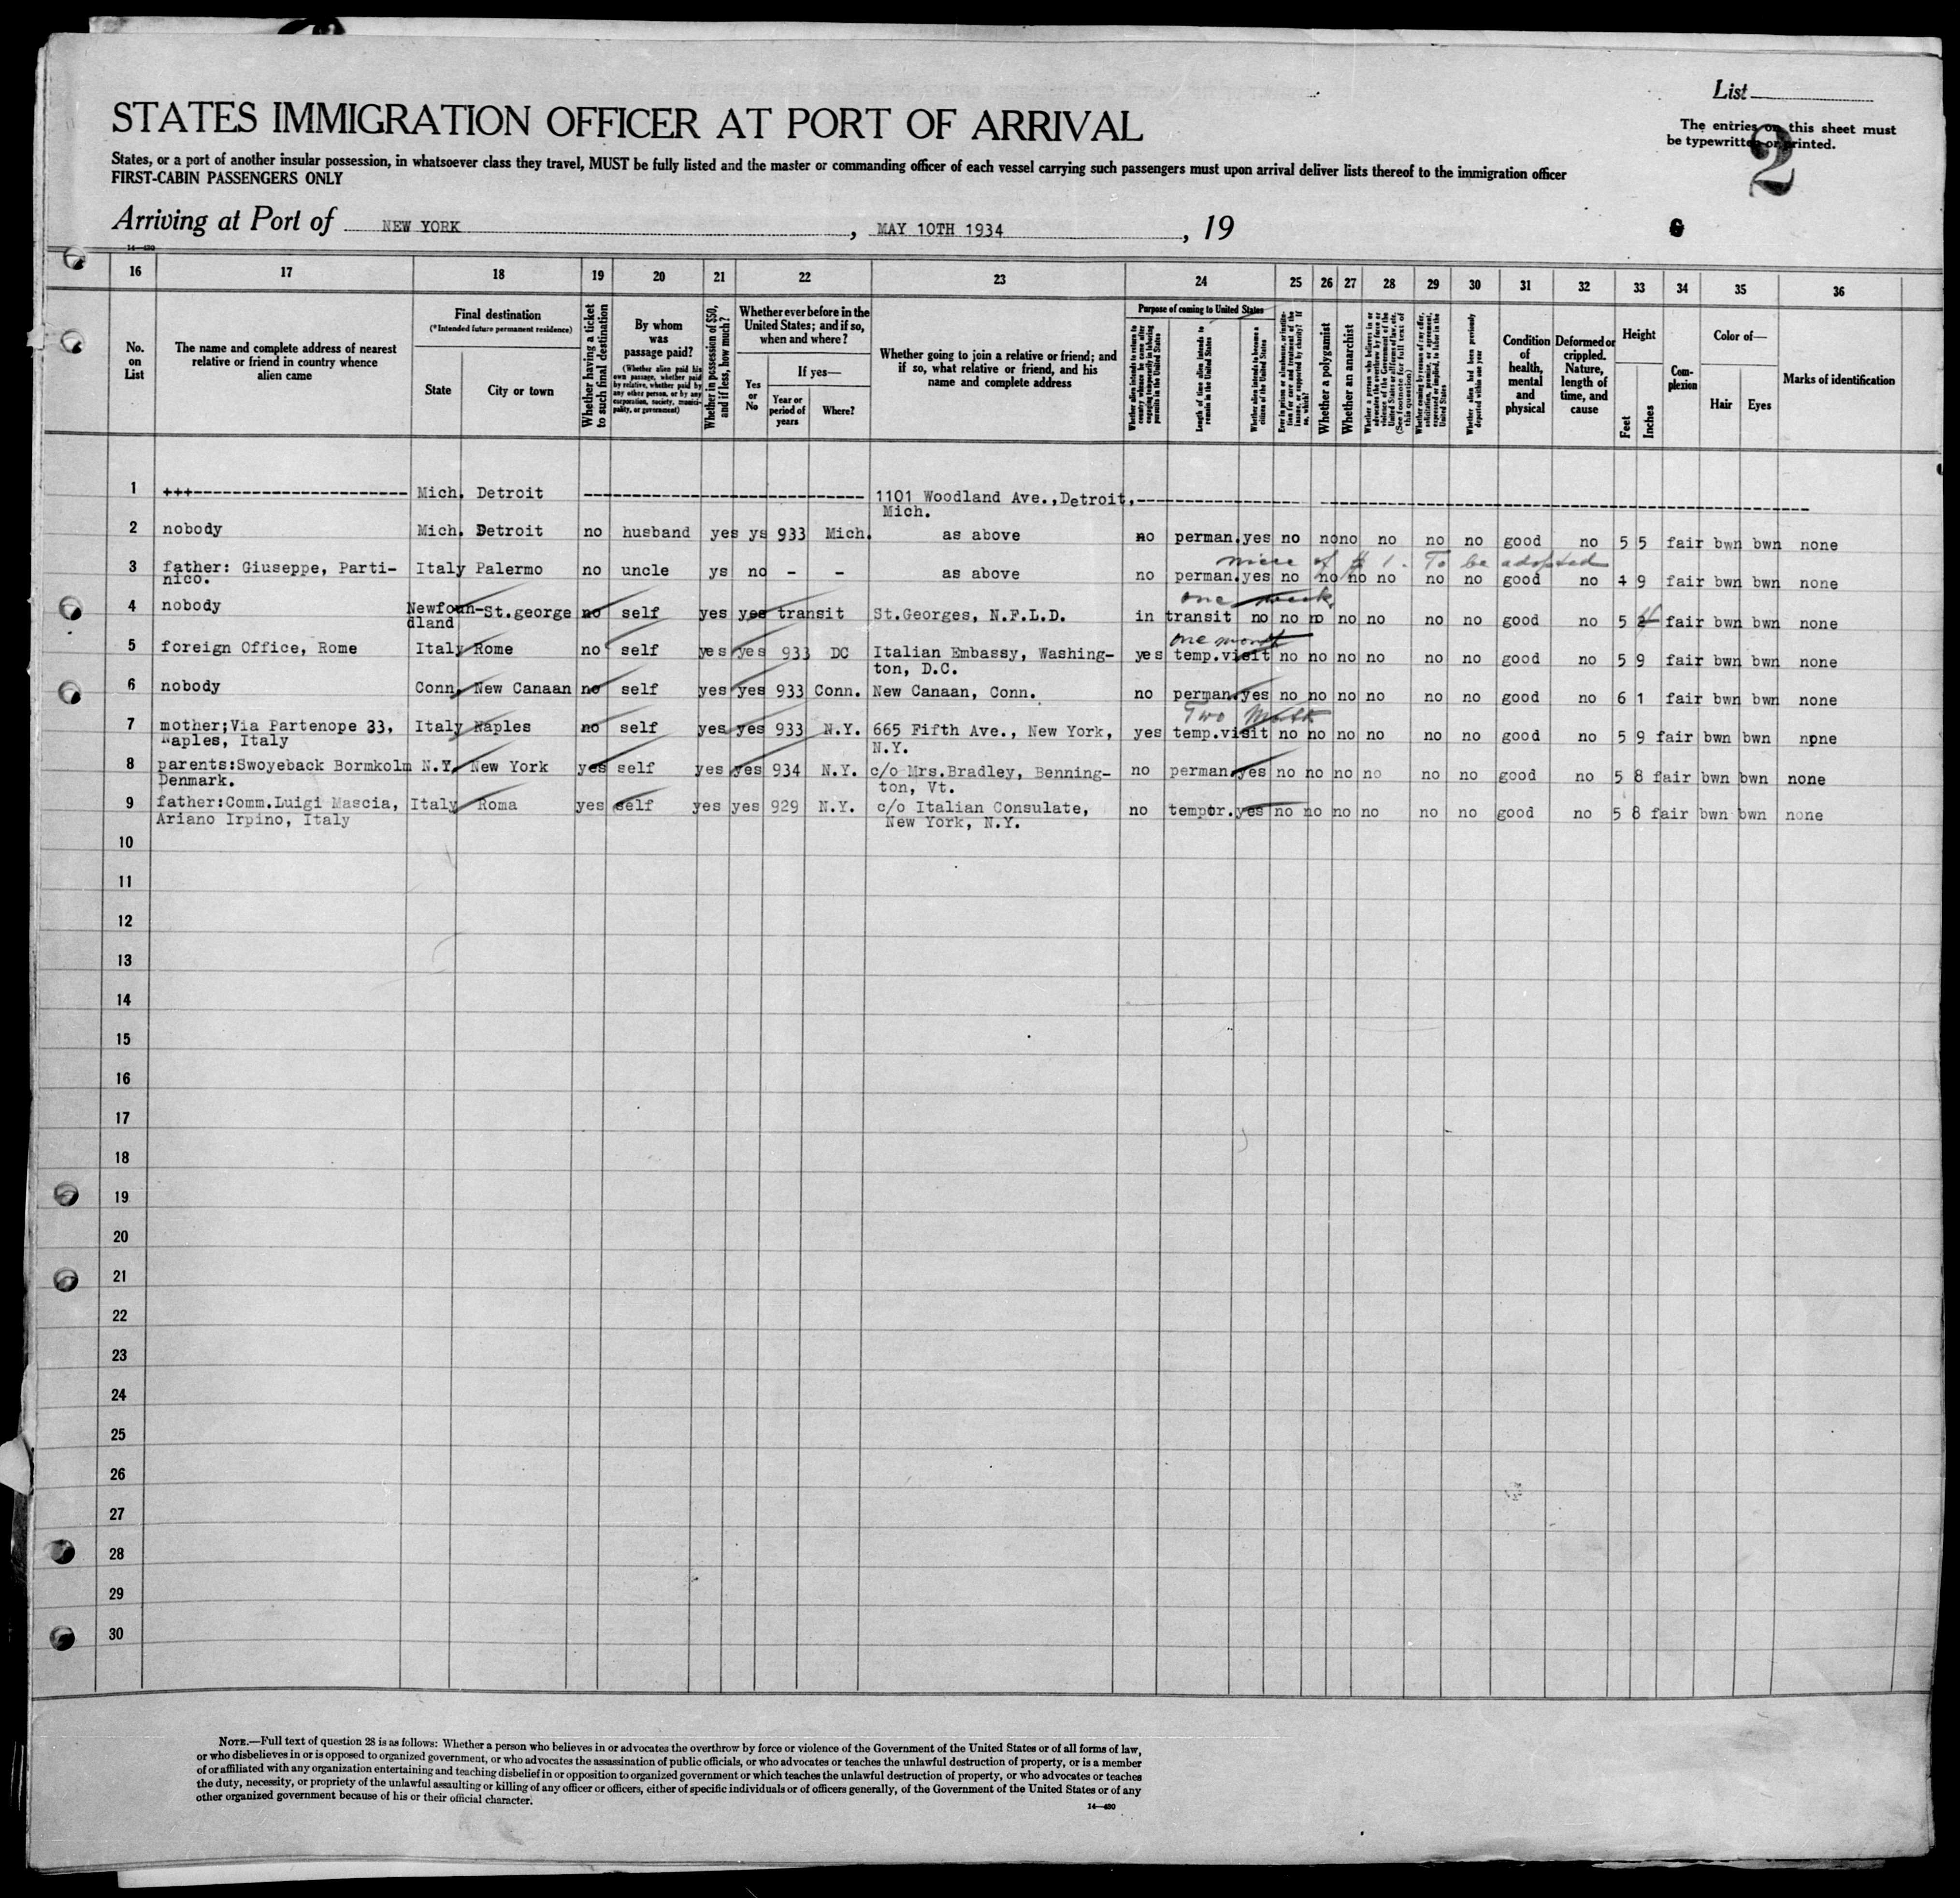 List
The entries on this sheet must
be typewritten or printed.
2
STATES IMMIGRATION OFFICER AT PORT OF ARRIVAL
States, or a port of another insular possession, in whatsoever class they travel, MUST be fully listed and the master or commanding officer of each vessel carrying such passengers must upon arrival deliver lists thereof to the immigration officer
FIRST-CABIN PASSENGERS ONLY
Arriving at Port of NEW YORK, MAY 10TH 1934, 19
6
14—430
16 17 18 19 20 21 22 23 24 25 26 27 28 29 30 31 32 33 34 35 36
No.
on
List
The name and complete address of nearest
relative or friend in country whence
alien came
Final destination
(*Intended future permanent residence)
State
City or town
Whether having a ticket
to such final destination
By whom
was
passage paid?
(Whether alien paid his
own passage, whether paid
by relative, whether paid by
any other person, or by any
corporation, society, munici-
pality, or government)
Whether in possession of $50,
and if less, how much?
Whether ever before in the
United States; and if so,
when and where?
Yes
or
No
If yes—
Year or
period of
years
Where?
Whether going to join a relative or friend; and
if so, what relative or friend, and his
name and complete address
Purpose of coming to United States
Whether alien intends to return to
country whence he came after
engaging temporarily in laboring
pursuits in the United States
Length of time alien intends to
remain in the United States
Whether alien intends to become a
citizen of the United States
Ever in prison or almshouse, or institu-
tion for care and treatment of the
insane, or supported by charity? If
so, which?
Whether a polygamist
Whether an anarchist
Whether a person who believes in or
advocates the overthrow by force or
violence of the Government of the
United States or all forms of law, etc.
(See footnote for full text of
this question)
Whether coming by reason of any offer,
solicitation, promise, or agreement,
expressed or implied, to labor in the
United States
Whether alien had been previously
deported within one year
Condition
of
health,
mental
and
physical
Deformed or
crippled.
Nature,
length of
time, and
cause
Height
Feet
Inches
Com-
plexion
Color of—
Hair
Eyes
Marks of identification
1 +++---------------------- Mich. Detroit ---------------------------- 1101 Woodland Ave.,Detroit,----------------------------------------
Mich.
2 nobody Mich. Detroit no husband yes ys 933 Mich. as above no perman. yes no no no no no no good no 5 5 fair bwn bwn none
niece of # 1. To be adopted
3 father: Giuseppe, Parti- Italy Palermo no uncle ys no - - as above no perman. yes no no no no no no good no 4 9 fair bwn bwn none
nico.
one week
4 nobody Newfoun- St.george no self yes yes transit St.Georges, N.F.L.D. in transit no no no no no no no good no 5 fair bwn bwn none
dland
one month
5 foreign Office, Rome Italy Rome no self yes yes 933 DC Italian Embassy, Washing- yes temp.visit no no no no no no good no 5 9 fair bwn bwn none
ton, D.C.
6 nobody Conn. New Canaan no self yes yes 933 Conn. New Canaan, Conn. no perman. yes no no no no no no good no 6 1 fair bwn bwn none
Two Month
7 mother;Via Partenope 33, Italy Naples no self yes yes 933 N.Y. 665 Fifth Ave., New York, yes temp.visit no no no no no no good no 5 9 fair bwn bwn npne
Naples, Italy N.Y.
8 parents:Swoyeback Bormkolm N.Y. New York yes self yes yes 934 N.Y. c/o Mrs.Bradley, Benning- no perman. yes no no no no no no good no 5 8 fair bwn bwn none
Denmark. ton, Vt.
9 father:Comm.Luigi Mascia, Italy Roma yes self yes yes 929 N.Y. c/o Italian Consulate, no tempor. yes no no no no no no good no 5 8 fair bwn bwn none
Ariano Irpino, Italy New York, N.Y.
10
11
12
13
14
15
16
17
18
19
20
21
22
23
24
25
26
27
28
29
30
NOTE.—Full text of question 28 is as follows: Whether a person who believes in or advocates the overthrow by force or violence of the Government of the United States or of all forms of law,
or who disbelieves in or is opposed to organized government, or who advocates the assassination of public officials, or who advocates or teaches the unlawful destruction of property, or is a member
of or affiliated with any organization entertaining and teaching disbelief in or opposition to organized government or which teaches the unlawful destruction of property, or who advocates or teaches
the duty, necessity, or propriety of the unlawful assaulting or killing of any officer or officers, either of specific individuals or of officers generally, of the Government of the United States or of any
other organized government because of his or their official character.
14—430